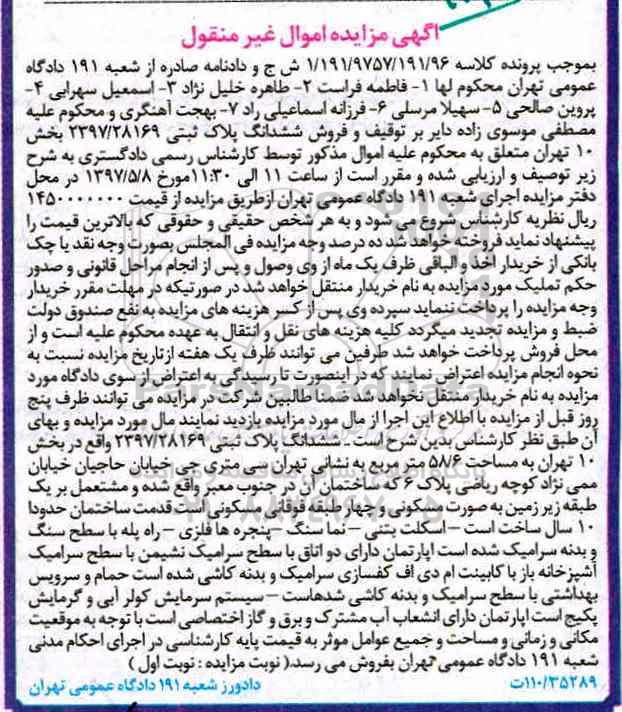 آگهی مزایده اموال غیر منقول
بموجب پرونده کلاسه ۱/۱۹۱/۹۷۵۷/۱۹۱/۹۶ ش ج و دادنامه صادره از شعبه ۱۹۱ دادگاه
عمومی تهران محکوم لها ۱- فاطمه فراست ۲- طاهره خلیل نژاد ۳- اسمعیل سهرابی ۴-
پروین صالحی ۵- سهیلا مرسلی ۶- فرزانه اسماعیلی راد ۷- بهجت آهنگری و محکوم علیه
مصطفی موسوی زاده دایر بر توقیف و فروش ششدانگ پلاک ثبتی ۲۳۹۷/۲۸۱۶۹ بخش
۱۰ تهران متعلق به محکوم علیه اموال مذکور توسط کارشناس رسمی دادگستری به شرح
زیر توصیف و ارزیابی شده و مقرر است از ساعت ۱۱ الی ۱۱:۳۰مورخ ۱۳۹۷/۵/۸ در محل
دفتر مزایده اجرای شعبه ۱۹۱ دادگاه عمومی تهران ازطریق مزایده از قیمت ۱۴۵۰۰۰۰۰۰۰
ریال نظریه کارشناس شروع می شود و به هر شخص حقیقی و حقوقی که بالاترین قیمت را
پیشنهاد نماید فروخته خواهد شد ده درصد وجه مزایده فی المجلس بصورت وجه نقد یا چک
بانکی از خریدار اخذ و الباقی ظرف یک ماه از وی وصول و پس از انجام مراحل قانونی و صدور
حکم تملیک مورد مزایده به نام خریدار منتقل خواهد شد در صورتیکه در مهلت مقرر خریدار
وجه مزایده را پرداخت ننماید سپرده وی پس از کسر هزینه های مزایده به نفع صندوق دولت
ضبط و مزایده تجدید میگردد کلیه هزینه های نقل و انتقال به عهده محکوم علیه است و از
محل فروش پرداخت خواهد شد طرفین می توانند ظرف یک هفته ازتاریخ مزایده نسبت به
نحوه انجام مزایده اعتراض نمایند که در اینصورت تا رسیدگی به اعتراض از سوی دادگاه مورد
مزایده به نام خریدار منتقل نخواهد شد ضمنا طالبین شرکت در مزایده می توانند ظرف پنج
روز قبل از مزایده با اطلاع این اجرا از مال مورد مزایده بازدید نمایند مال مورد مزایده و بهای
آن طبق نظر کارشناس بدین شرح است .. ششدانگ پلاک ثبتی ۲۳۹۷/۲۸۱۶۹ واقع در بخش
۱۰ تهران به مساحت ۵۸/۶ متر مربع به نشانی تهران سی متری جی خیابان حاجیان خیابان
ممی نژاد کوچه ریاضی پلاک ۶ که ساختمان آن در جنوب معبر واقع شده و مشتمل بر یک
طبقه زیر زمین به صورت مسکونی و چهار طبقه فوقانی مسکونی است قدمت ساختمان حدودا
۱۰ سال ساخت است – اسکلت بتنی – نما سنگ –پنجره ها فلزی – راه پله با سطح سنگ
و بدنه سرامیک شده است اپارتمان دارای دو اتاق با سطح سرامیک نشیمن با سطح سرامیک
آشپزخانه باز با کابینت ام دی اف کفسازی سرامیک و بدنه کاشی شده است حمام و سرویس
بهداشتی با سطح سرامیک و بدنه کاشی شدهاست – سیستم سرمایش کولر آبی و گرمایش
پکیج است اپارتمان دارای انشعاب آب مشترک و برق و گاز اختصاصی است با توجه به موقعیت
مکانی و زمانی و مساحت و جمیع عوامل موثر به قیمت پایه کارشناسی در اجرای احکام مدنی
شعبه ۱۹۱ دادگاه عمومی تهران بفروش می رسد.( نوبت مزایده : نوبت اول )
۱۱۰/۳۵۲۸۹ت دادورز شعبه ۱۹۱ دادگاه عمومی تهران